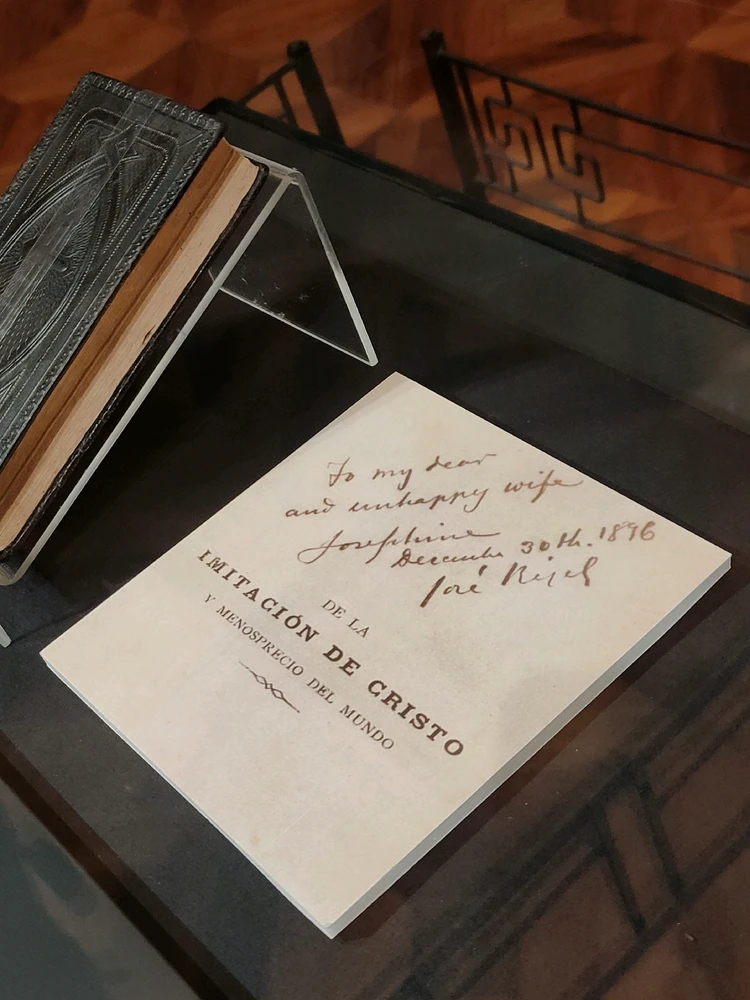 To my dear
and unhappy wife
Josephine
December 30th. 1896
José Rizal
DE LA
IMITACIÓN DE CRISTO
Y MENOSPRECIO DEL MUNDO